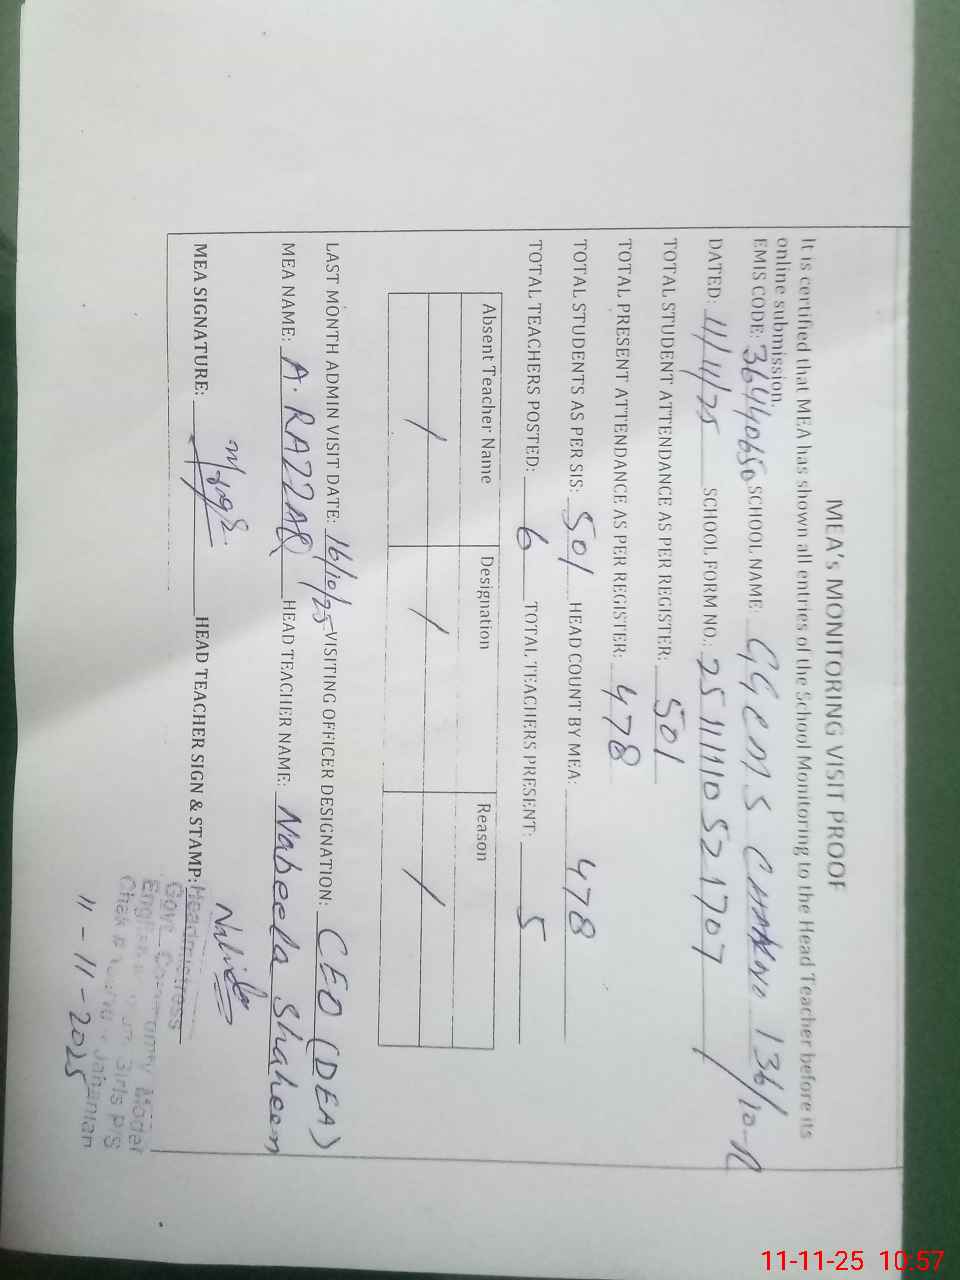 MEA's MONITORING VISIT PROOF
It is certified that MEA has shown all entries of the School Monitoring to the Head Teacher before its
online submission.
EMIS CODE: 36440650 SCHOOL NAME: GGCMS CHAK NO 136/10-R
DATED: 11/11/25 SCHOOL FORM NO.: 25111110521707
TOTAL STUDENT ATTENDANCE AS PER REGISTER: 501
TOTAL PRESENT ATTENDANCE AS PER REGISTER: 478
TOTAL STUDENTS AS PER SIS: 501 HEAD COUNT BY MEA: 478
TOTAL TEACHERS POSTED: 6 TOTAL TEACHERS PRESENT: 5
Absent Teacher Name Designation Reason
/ / /
LAST MONTH ADMIN VISIT DATE: 16/10/25 VISITING OFFICER DESIGNATION: CEO (DEA)
MEA NAME: A. RAZZAQ HEAD TEACHER NAME: Nabeela Shaheen
MEA SIGNATURE: HEAD TEACHER SIGN & STAMP:
Headmistress
Govt. Community Model
Girls P/S
Chak Jahanian
11-11-2025
11-11-25 10:57